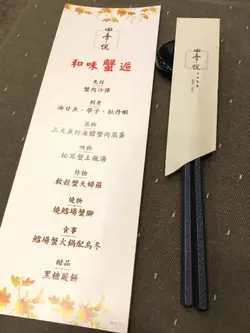 四季悅
和味蟹逅
先付
蟹肉沙律
刺身
油甘魚、帶子、牡丹蝦
蒸物
三文魚籽海膽蟹肉蒸蛋
吸物
松茸蟹土瓶湯
炸物
軟殼蟹天婦羅
燒物
燒鱈場蟹腳
食事
鱈場蟹火鍋配烏冬
甜品
黑糖蕨餅
四季悅